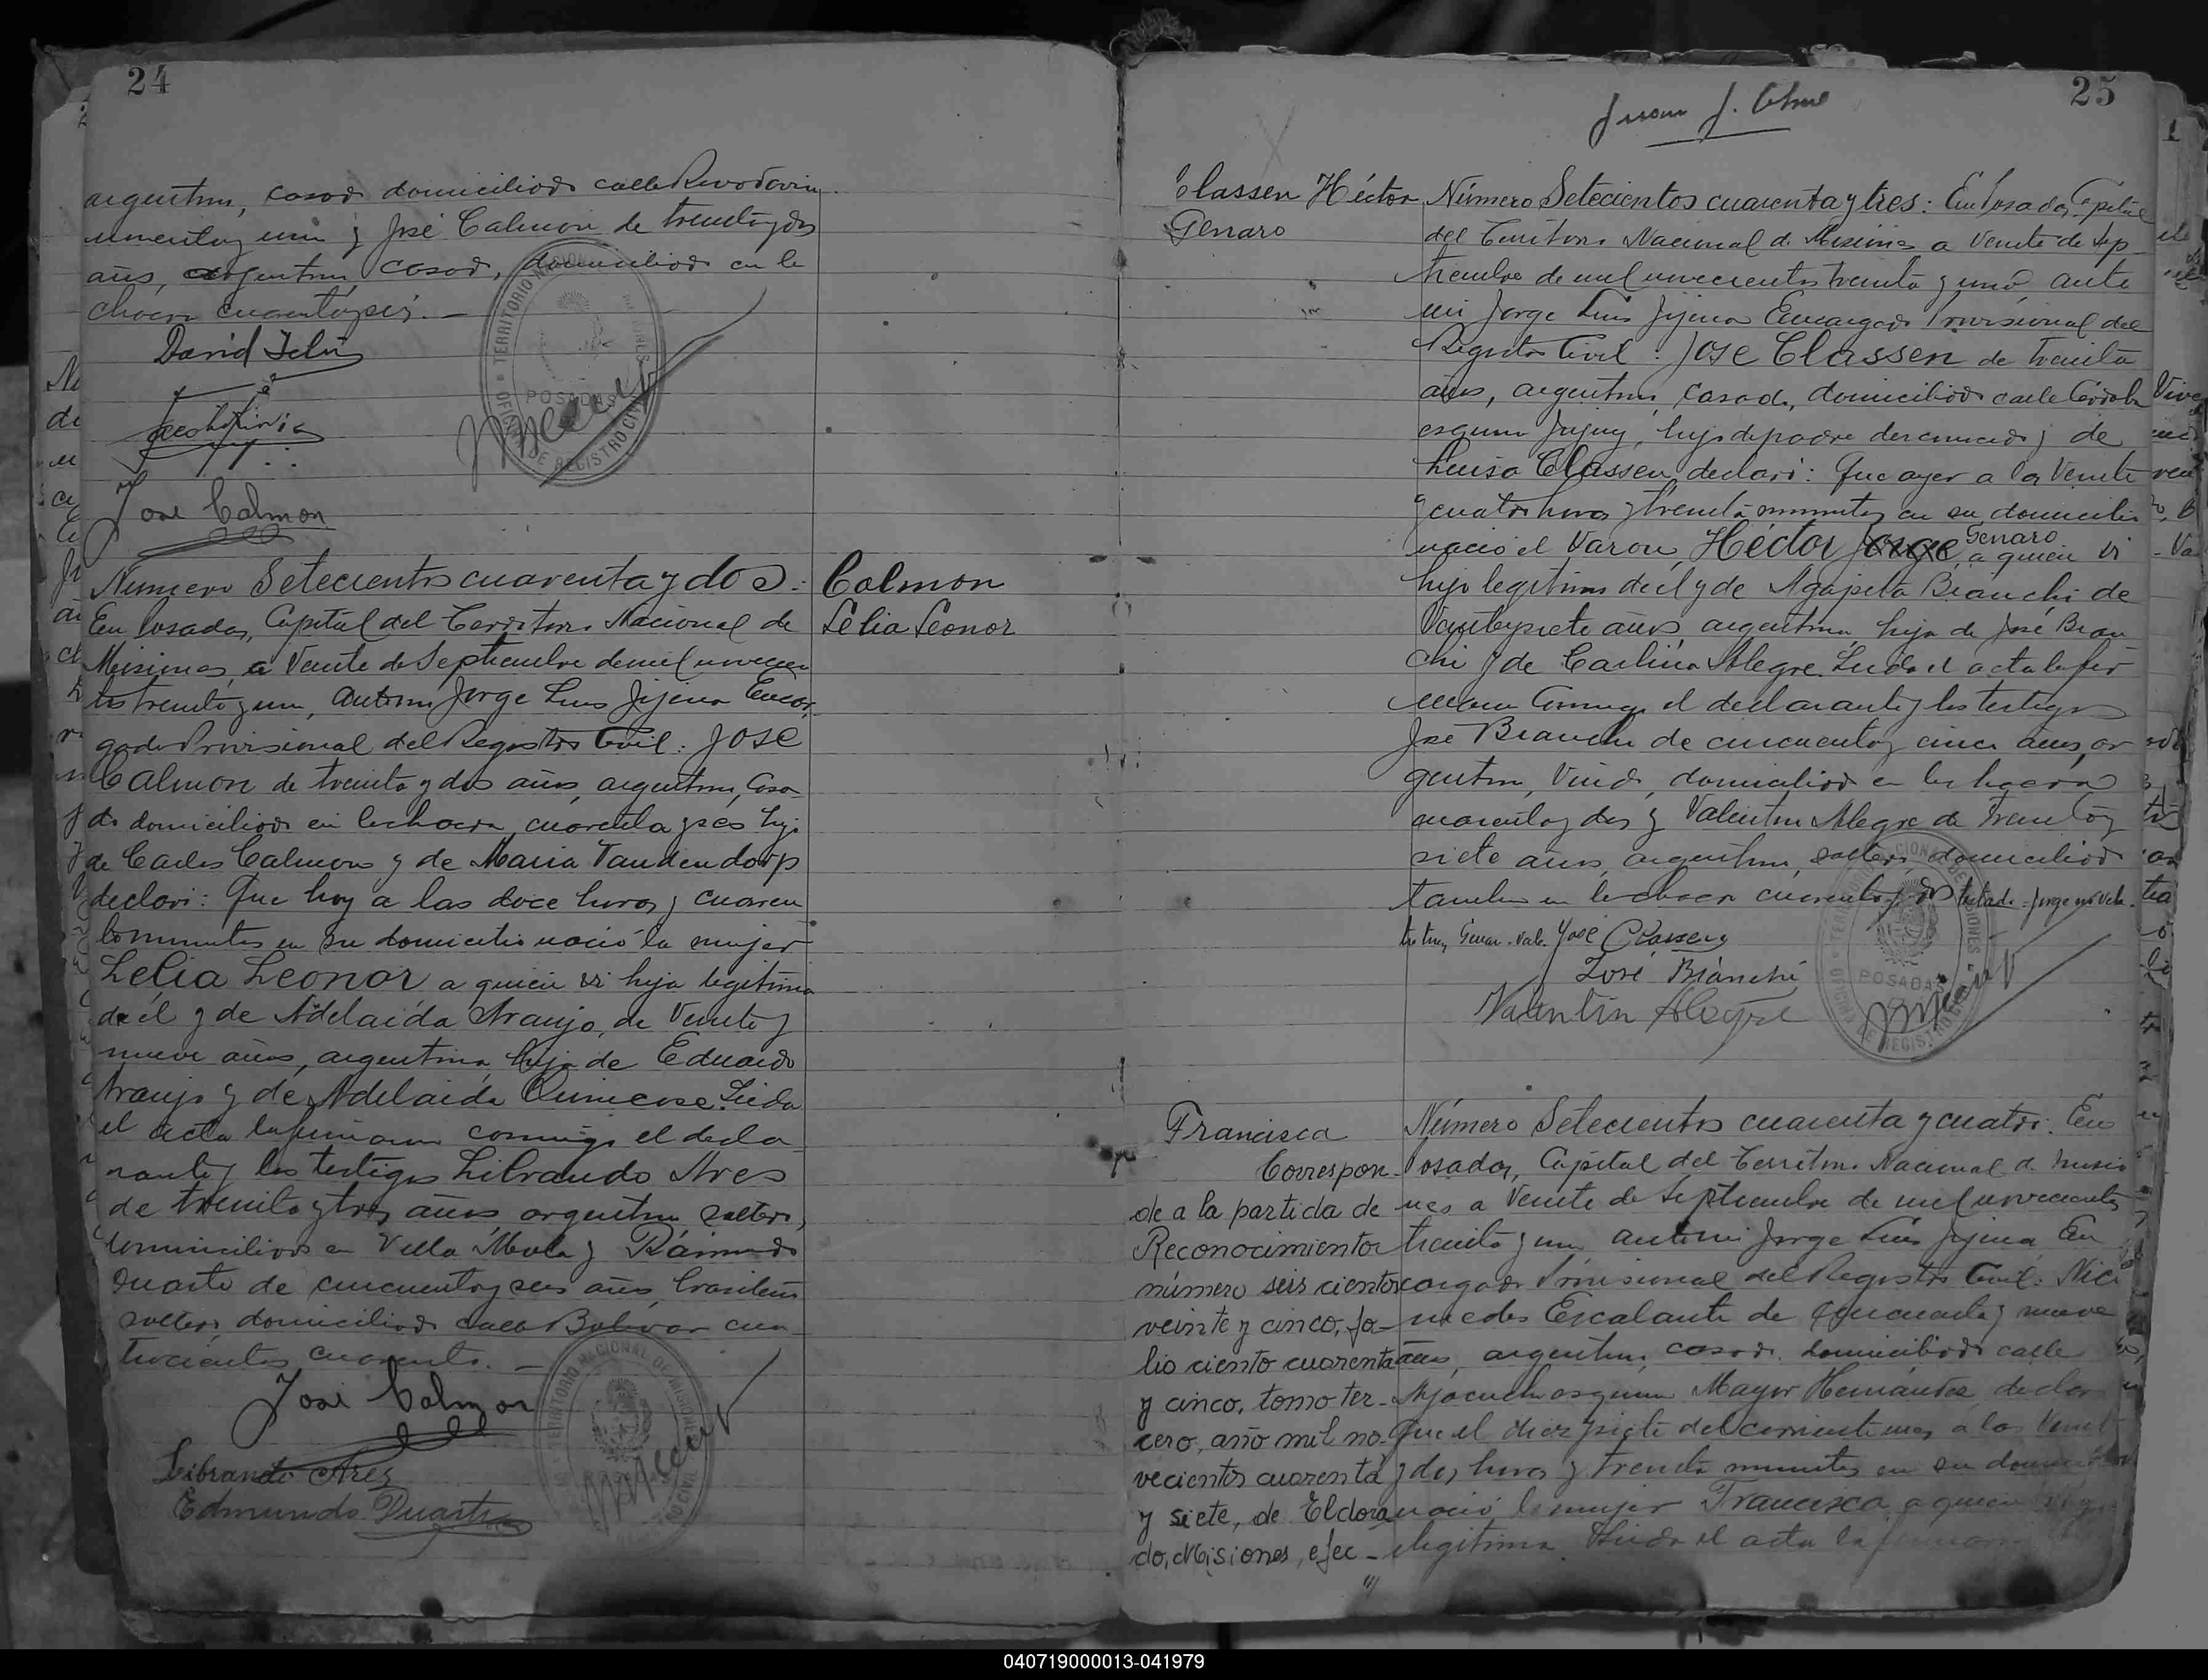 24
argentino, casado domiciliado calle Rivadavia
y José Calmon de treinta y dos
años, argentino, casado, domiciliado en la
chacra cuarenta y seis. —
David
José Calmon
Número Setecientos cuarenta y dos:
En Posadas, Capital del Territorio Nacional de
Misiones, a Veinte de Septiembre de mil novecien
tos treinta y uno, ante mi Jorge Luis Jijena Encar
gado Provisional del Registro Civil: José
Calmon de treinta y dos años, argentino, casa
do domiciliado en la chacra cuarenta y seis hijo
de Carlos Calmon y de Maria Tandendorp
declaró: Que hoy a las doce horas y cuaren
ta minutos en su domicilio nació la mujer
Lelia Leonor a quien vi hija legítima
de él y de Adelaida Araujo, de Veinte y
nueve años, argentina, hija de Eduardo
Araujo y de Adelaida Leida
el acta la firmaron conmigo el decla
rante y los testigos Librando Ares
de treinta y tres años, argentino, soltero,
domiciliado en Villa Mola y Raimundo
Duarte de cincuenta y seis años, brasileño
soltero, domiciliado calle Bolivar cua
trocientos cuarenta. —
José Calmon
Librando Ares
Edmundo Duarte
Calmon
Lelia Leonor
TERRITORIO NACIONAL DE MISIONES
POSADAS
OFICINA DE REGISTRO CIVIL
25
Juan J.
Classen Héctor
Genaro
Número Setecientos cuarenta y tres: En Posadas, Capital
del Territorio Nacional de Misiones a Veinte de Sep
tiembre de mil novecientos treinta y uno, ante
mi Jorge Luis Jijena Encargado Provisional del
Registro Civil: José Classen de treinta
años, argentino, casado, domiciliado calle Córdoba
esquina Jujuy, hijo de padre desconocido y de
Luisa Classen declaró: Que ayer a las Veinte
y cuatro horas y treinta minutos en su domicilio
nació el Varon, Héctor Jorge Genaro, a quien vi
hijo legítimo de él y de Agapita Bianchi de
Veintisiete años, argentina hija de José Bian
chi y de Carlina Alegre. Leida el acta la fir
maron conmigo el declarante y los testigos
José Bianchi de cincuenta y cinco años, ar
gentino, Viudo, domiciliado en la chacra
cuarenta y dos y Valentin Alegre de treinta y
siete años, argentino, soltero, domiciliado
tambien en la chacra cuarenta y dos testado - Jorge no vale.
Genaro. Vale. José Classen
José Bianchi
Valentin Alegre
TERRITORIO NACIONAL DE MISIONES
POSADAS
OFICINA DE REGISTRO CIVIL
Francisca
Correspon-
de a la partida de
Reconocimientos
número seis cientos
veinte y cinco, fo-
lio ciento cuarenta
y cinco, tomo ter-
cero, año mil no-
vecientos cuarenta
y siete, de Eldora
do, Misiones, efec-
Número Setecientos cuarenta y cuatro: En
Posadas, Capital del Territorio Nacional de Misio
nes a Veinte de Septiembre de mil novecientos
treinta y uno ante mi Jorge Luis Jijena En
cargado Provisional del Registro Civil: Nico
medes Escalante de cincuenta y nueve
años, argentino, casado, domiciliado calle
Ayacucho esquina Mayor Hernández declaró
Que el diez y siete del corriente mes a las Veinte
y dos horas y treinta minutos en su domicilio
nació la mujer Francisca a quien
ilegítima. Leida el acta la firmaron
040719000013-041979